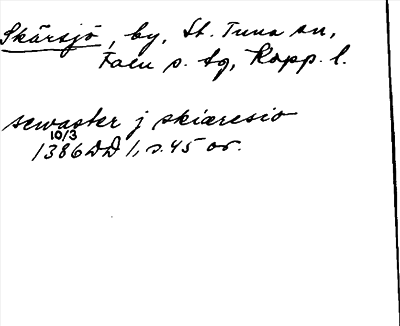 Skärsjö, by, St. Tuna sn,
Falu s. tg, Kopp. l.
sewaster j skiæresio
10/3
1386 DD 1, s. 45 or.